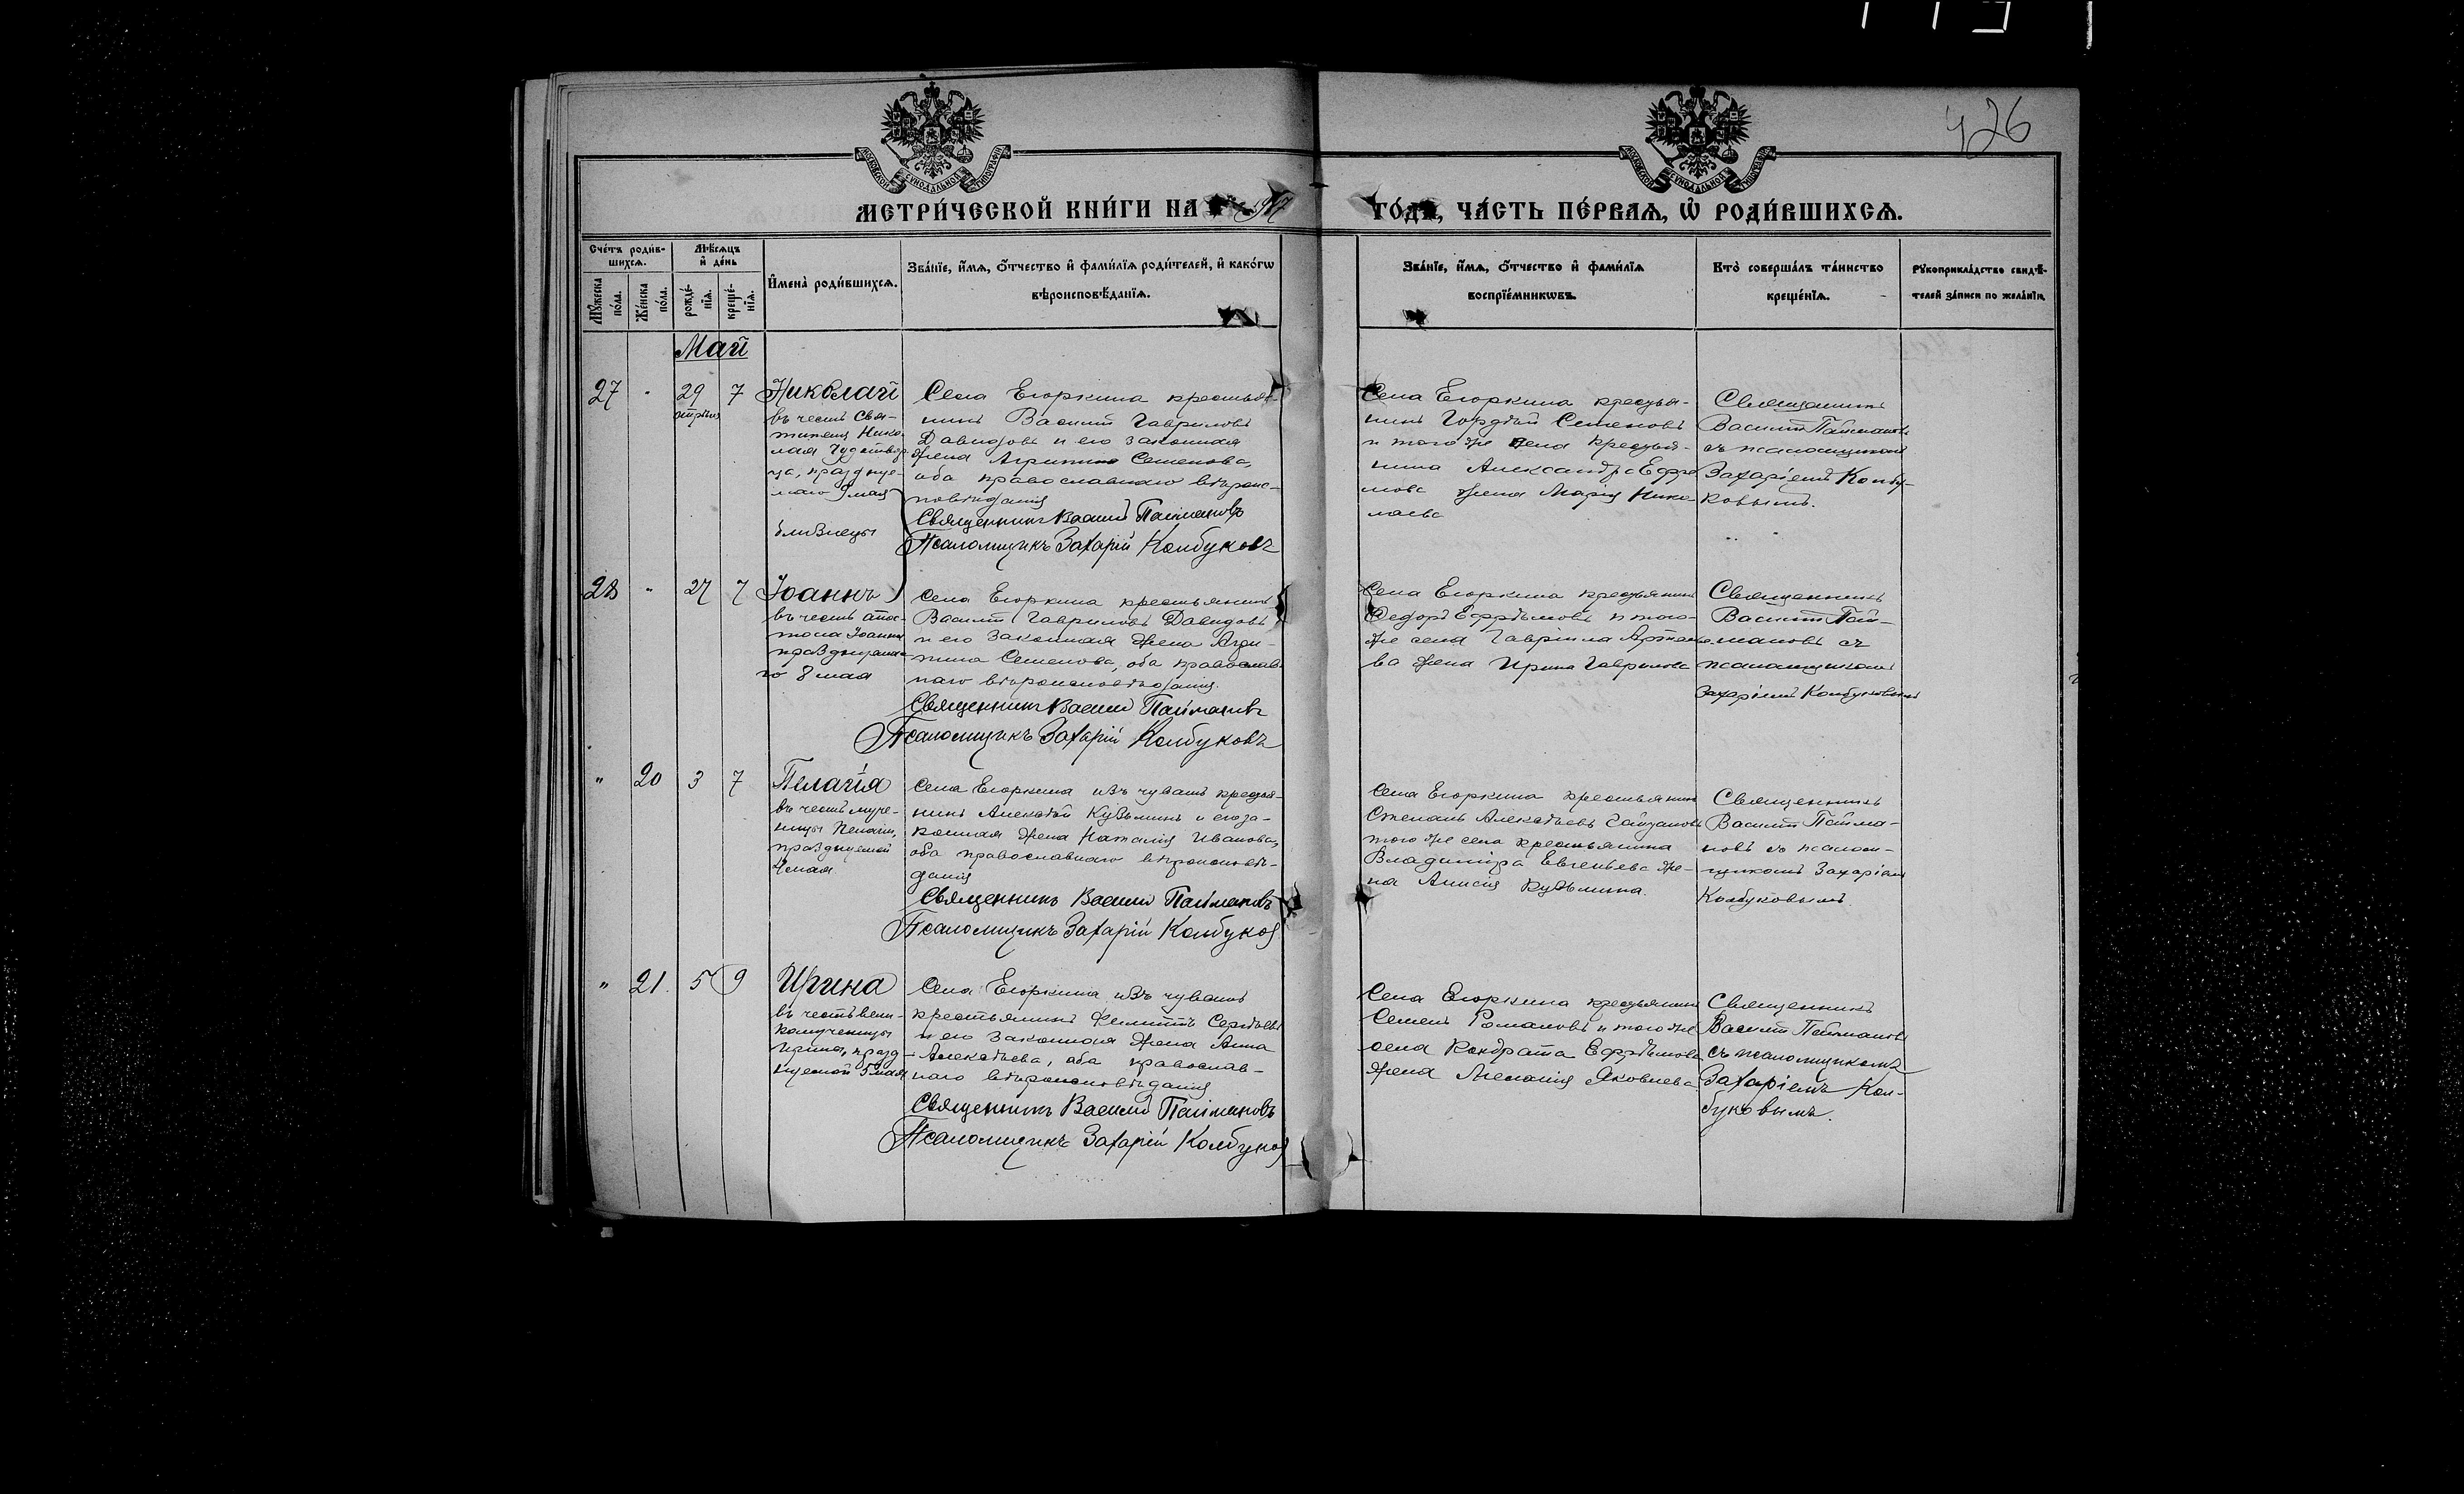 426
МОСКОВСКОЙ СѴНОДАЛЬНОЙ ТИПОГРАФІИ
МОСКОВСКОЙ СѴНОДАЛЬНОЙ ТИПОГРАФІИ
МЕТРИ́ЧЕСКОЙ КНИ́ГИ НА 1917 ГО́ДЪ, ЧА́СТЬ ПЕ́РВАѦ, Ѡ҆ РОДИ́ВШИХСѦ.
Сче́тъ роди́в-
шихсѧ.
Мꙋ́жеска по́ла.
Же́нска по́ла.
Мѣ́сѧцъ
и҆ де́нь
рожде́-
нїѧ.
креще́-
нїѧ.
И҆мена̀ роди́вшихсѧ.
Зва́нїе, и҆́мѧ, ѻ҆́тчество и҆ фамилїѧ роди́телей, и҆ како́гѡ
вѣ́роисповѣ́данїѧ.
Зва́нїе, и҆́мѧ, ѻ҆́тчество и҆ фами́лїѧ
воспрїе́мникѡвъ.
Кто̀ соверша́лъ та́инство
креще́нїѧ.
Рꙋкоприкла́дство свидѣ́-
телей за́писи по жела́нїю.
Май
27 " 29 7
апрѣля
Николай
въ честь Свя-
тителя Нико-
лая Чудотвор-
ца, празднуе-
маго 9 мая
близнецы
Села Егоркина крестья-
нинъ Василій Гавриловъ
Давидовъ и его законная
жена Агрипина Семенова,
оба православнаго вѣроис-
повѣданія
Священникъ Василій Паймановъ
Псаломщикъ Захарій Колбуковъ
Села Егоркина крестья-
нинъ Гордѣй Семеновъ
и того же села крестья-
нина Александра Ефре
мова жена Марія Нико-
лаева
Священникъ
Василій Паймановъ
съ псаломщикомъ
Захаріемъ Колбу-
ковымъ.
28 " 27 7
Іоаннъ
въ честь апос-
тола Іоанна
празднуема-
го 8 мая
Села Егоркина крестьянинъ
Василій Гавриловъ Давидовъ
и его законная жена Агри-
пина Семенова, оба православ-
наго вѣроисповѣданія.
Священникъ Василій Паймановъ
Псаломщикъ Захарій Колбуковъ
Села Егоркина крестьянинъ
Федоръ Ефрѣмовъ и того-
же села Гавріила Артемье
ва жена Ирина Гаврилова
Священникъ
Василій Пай-
мановъ съ
псаломщикомъ
Захаріемъ Колбуковымъ
" 20 3 7
Пелагія
въ честь муче-
ницы Пелагіи,
празднуемой
4 мая
Села Егоркина изъ чувашъ крестья-
нинъ Алексѣй Кузьминъ и его за-
конная жена Наталія Иванова,
оба православнаго вѣроисповѣ-
данія
Священникъ Василій Паймановъ
Псаломщикъ Захарій Колбуков
Села Егоркина крестьянинъ
Степанъ Алексѣевъ
того же села крестьянина
Владиміра Евгеньева же-
на Анисія Кузьмина.
Священникъ
Василій Пайма-
новъ съ псалом-
щикомъ Захаріемъ
Колбуковымъ.
" 21 5 9
Ирина
въ честь вели-
комученицы
Ирины, празд-
нуемой 5 мая
Села Егоркина изъ чувашъ
крестьянинъ Филиппъ Сергѣевъ
и его законная жена Анна
Алексѣева, оба православ-
наго вѣроисповѣданія
Священникъ Василій Паймановъ
Псаломщикъ Захарій Колбуков
Села Егоркина крестьянинъ
Семенъ Романовъ и того же
села Кондрата Ефрѣмова
жена Меланія Яковлева
Священникъ
Василій Паймановъ
съ псаломщикомъ
Захаріемъ Кол-
буковымъ.